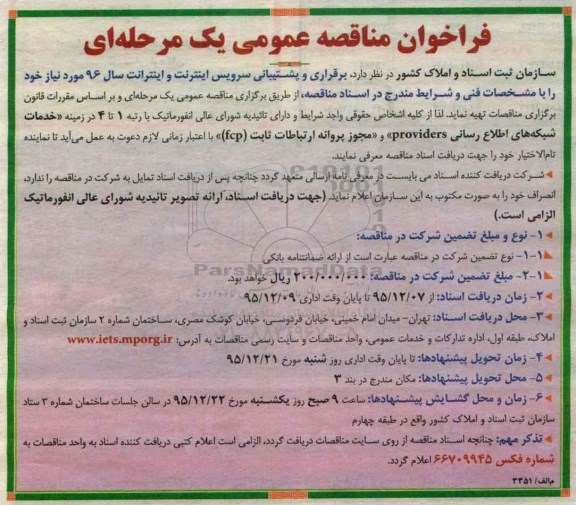 فراخوان مناقصه عمومی یک مرحله‌ای
سازمان ثبت اسناد و املاک کشور در نظر دارد، برقراری و پشتیبانی سرویس اینترنت و اینترانت سال ۹۶ مورد نیاز خود
را با مشخصات فنی و شرایط مندرج در اسناد مناقصه، از طریق برگزاری مناقصه عمومی یک مرحله‌ای و بر اساس مقررات قانون
برگزاری مناقصات تهیه نماید. لذا از کلیه اشخاص حقوقی واجد شرایط و دارای تائیدیه شورای عالی انفورماتیک با رتبه ۱ تا ۴ در زمینه «خدمات
شبکه‌های اطلاع رسانی providers» و «مجوز پروانه ارتباطات ثابت (fcp)» با اعتبار زمانی لازم دعوت به عمل می‌آید تا نماینده
تام‌الاختیار خود را جهت دریافت اسناد مناقصه معرفی نمایند.
شرکت دریافت کننده اسناد می بایست در معرفی نامه ارسالی متعهد گردد چنانچه پس از دریافت اسناد تمایل به شرکت در مناقصه را ندارد،
انصراف خود را به صورت مکتوب به این سازمان اعلام نماید. (جهت دریافت اسناد، ارائه تصویر تائیدیه شورای عالی انفورماتیک
الزامی است.)
۱- نوع و مبلغ تضمین شرکت در مناقصه:
۱-۱- نوع تضمین شرکت در مناقصه عبارت است از ارائه ضمانتنامه بانکی
۲-۱- مبلغ تضمین شرکت در مناقصه: ۲۰۰/۰۰۰/۰۰۰ ریال خواهد بود.
۲- زمان دریافت اسناد: از ۹۵/۱۲/۰۷ تا پایان وقت اداری ۹۵/۱۲/۰۹
۳- محل دریافت اسناد: تهران- میدان امام خمینی، خیابان فردوسی، خیابان کوشک مصری، ساختمان شماره ۲ سازمان ثبت اسناد و
املاک، طبقه اول، اداره تدارکات و خدمات عمومی، واحد مناقصات و سایت رسمی مناقصات به آدرس: www.iets.mporg.ir
۴- زمان تحویل پیشنهادها: تا پایان وقت اداری روز شنبه مورخ ۹۵/۱۲/۲۱
۵- محل تحویل پیشنهادها: مکان مندرج در بند ۳
۶- زمان و محل گشایش پیشنهادها: ساعت ۹ صبح روز یکشنبه مورخ ۹۵/۱۲/۲۲ در سالن جلسات ساختمان شماره ۳ ستاد
سازمان ثبت اسناد و املاک کشور واقع در طبقه چهارم
تذکر مهم: چنانچه اسناد مناقصه از روی سایت مناقصات دریافت گردد، الزامی است اعلام کتبی دریافت کننده اسناد به واحد مناقصات به
شماره فکس ۶۶۷۰۹۹۴۵ اعلام گردد.
م‌الف/ ۳۳۵۱
ParsNamadData